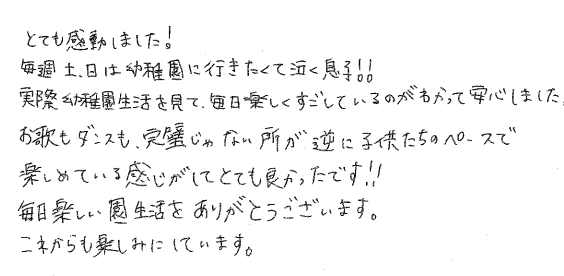 とても感動しました!
毎週土、日は幼稚園に行きたくて泣く息子!!
実際幼稚園生活を見て、毎日楽しくすごしているのがわかって安心しました。
お歌もダンスも、完璧じゃない所が逆に子供たちのペースで
楽しめている感じがしてとても良かったです!!
毎日楽しい園生活をありがとうございます。
これからも楽しみにしています。